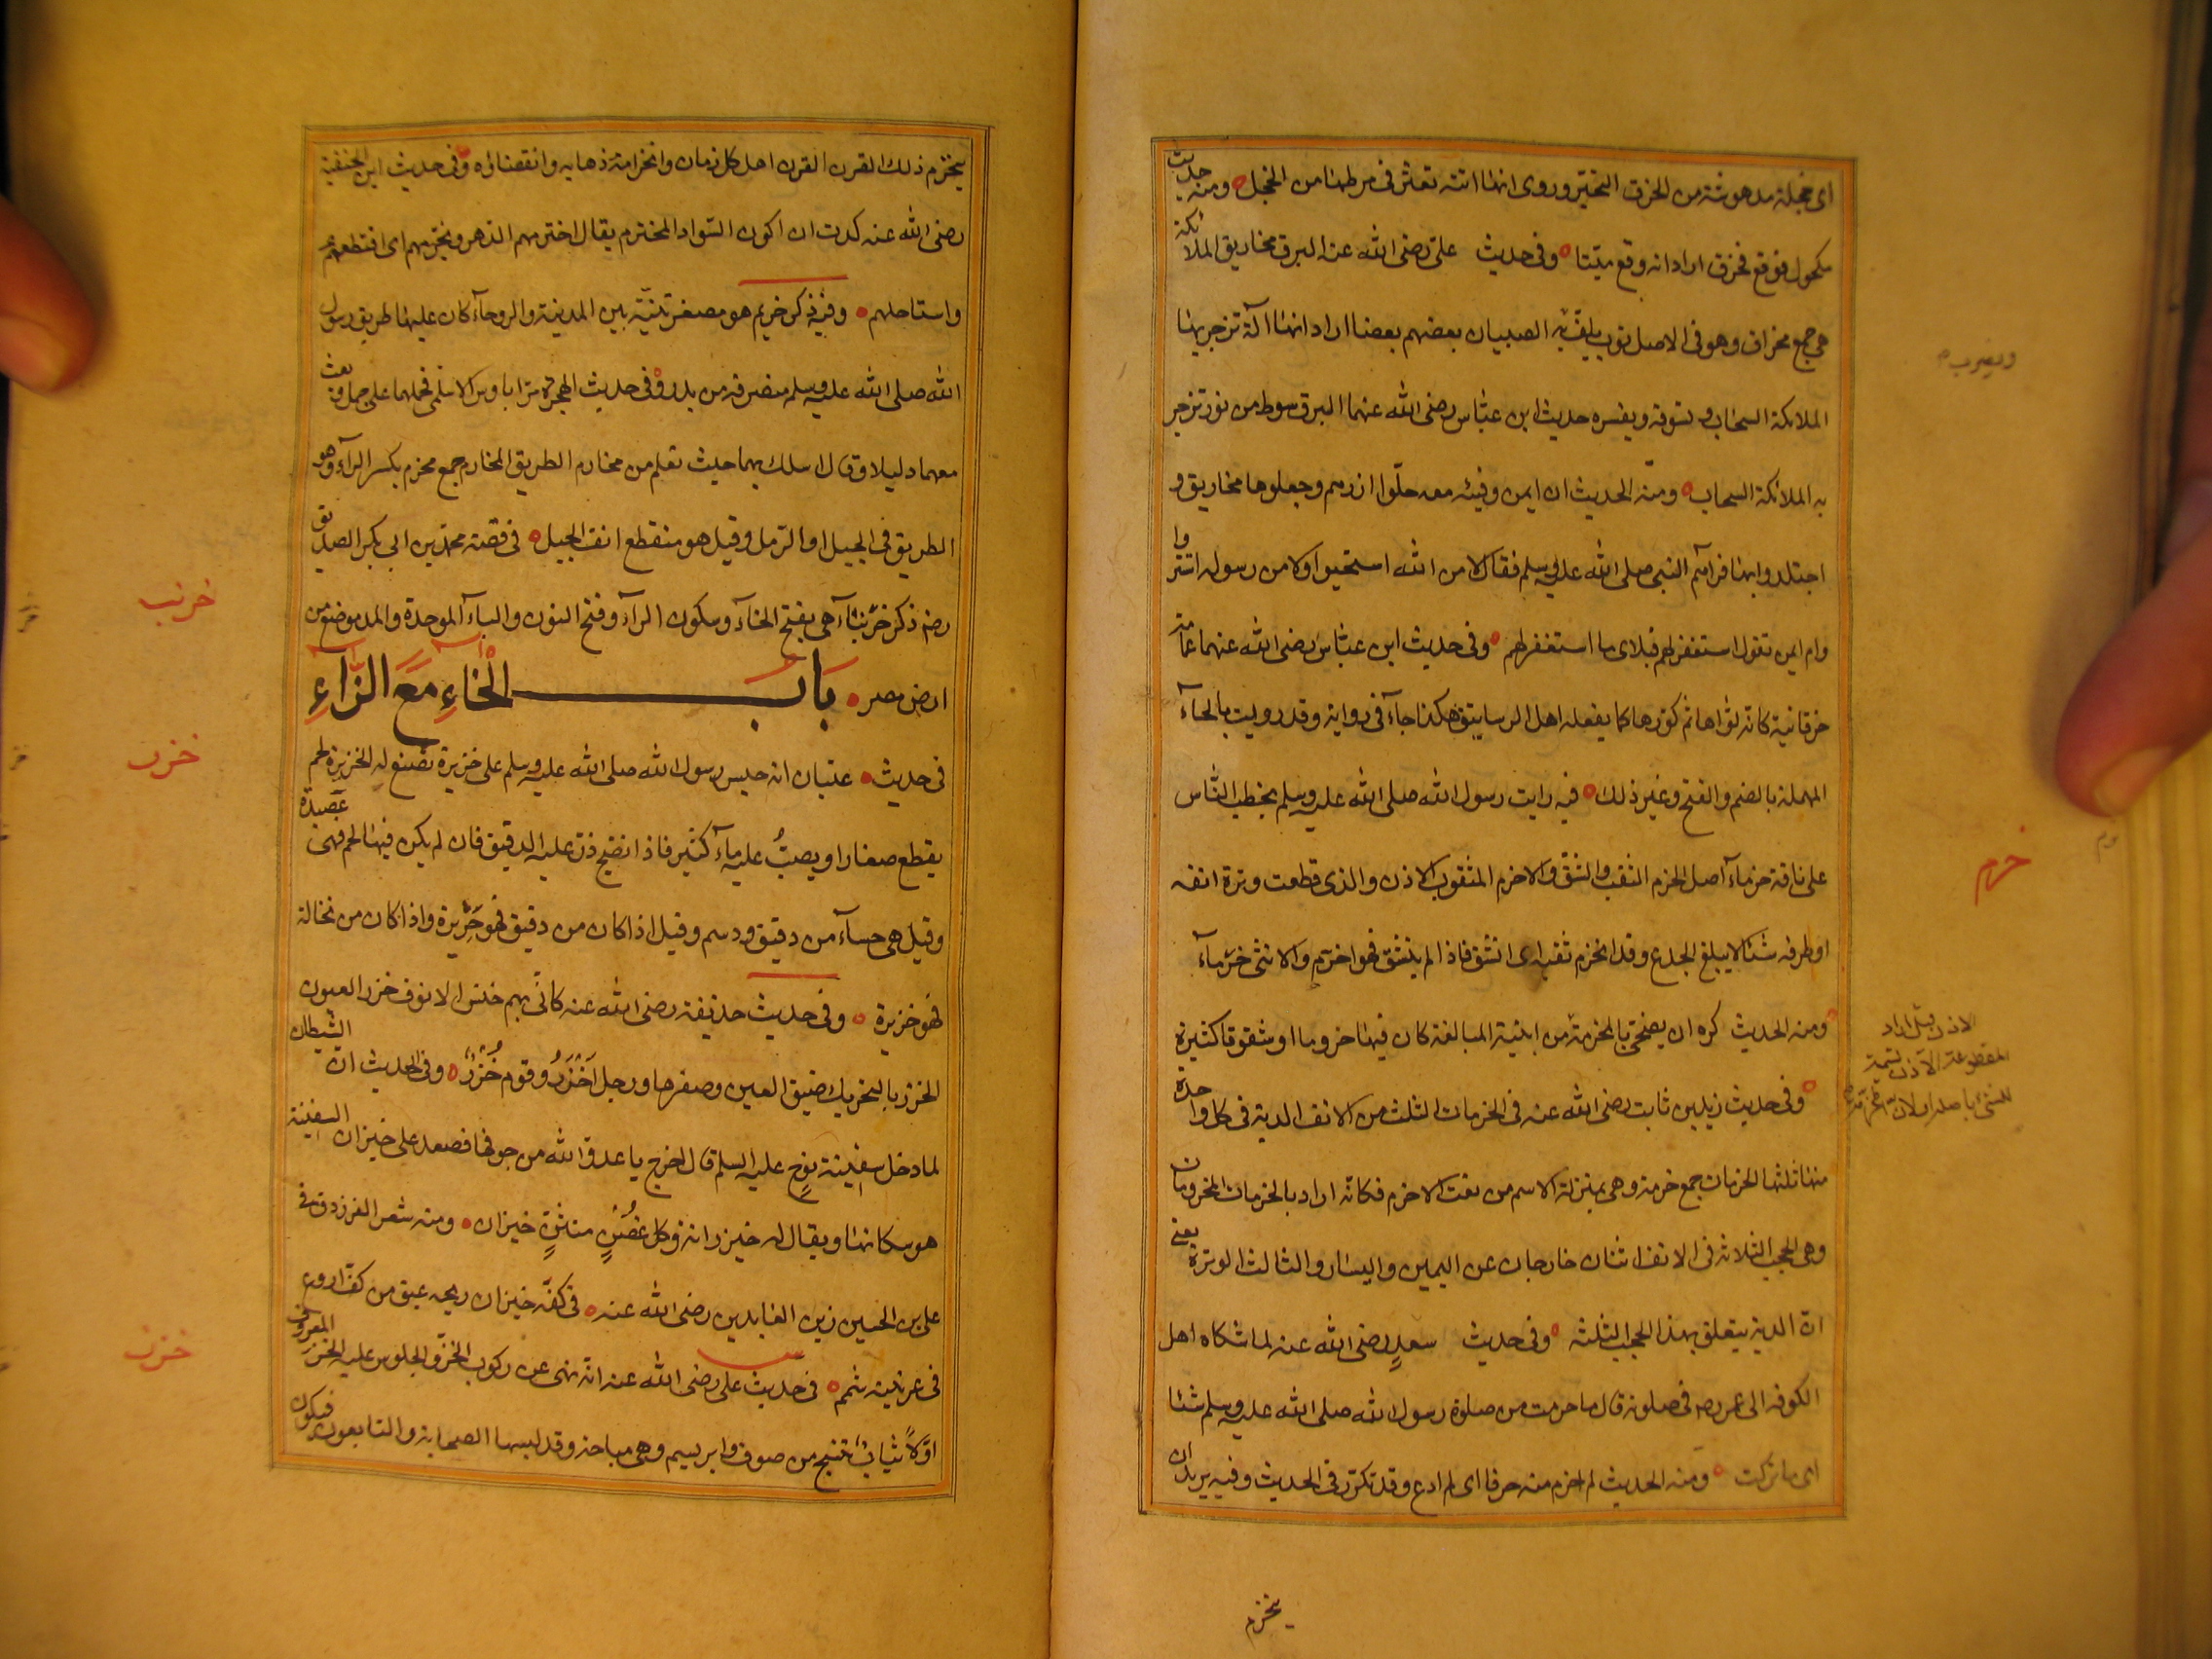 اى خجلة مدهوشة من الخرق التحير وروى انها اتته تعثر فى مرطها من الخجل ومنه حديث
مكحول فوقع فخرق اراد انه وقع ميتا وفى حديث على رضى الله عنه البرق مخاريق الملائكة
هى جمع مخراق وهو فى الاصل ثوب يلف به الصبيان بعضهم بعضا اراد انها آلة تزجر بها
ويضرب
الملائكة السحاب وتسوقه ويفسره حديث ابن عباس رضى الله عنهما البرق سوط من نور تزجر
به الملائكة السحاب ومنه الحديث ان ايمن وفيته معه حلوا ازرهم وجعلوها مخاريق و
اجتلدوا بها فرآهم النبى صلى الله عليه وسلم فقال لا من الله استحيوا ولا من رسوله استتروا
وام ايمن تقول استغفر لهم فبلاى ما استغفر لهم وفى حديث ابن عباس رضى الله عنهما عمامة
خرقانية كانه لواها ثم كورها كما يفعله اهل الرساتيق هكذا جآء فى رواية وقد رويت بالحآء
المهملة بالضم والفتح وغير ذلك فيه رايت رسول الله صلى الله عليه وسلم يخطب الناس
على ناقة خرمآء اصل الخرم الثقب والشق والاخرم المثقوب الاذن والذى قطعت وترة انفه
خرم
او طرفه شيئا لا يبلغ الجدع وقد انخرم ثقبه اى انشق فاذا لم ينشق فهو اخرم والانثى خرمآء
ومنه الحديث كره ان يضحى بالمخرمة من ابنية المبالغة كان فيها خروما او شقوقا كثيرة
الاذن قيل اراد
المقطوعة الاذن تسمية
للشئ باصله او لان المخرمة
وفى حديث زيد بن ثابت رضى الله عنه فى الخرمات الثلث من الانف الدية فى كل واحدة
منها ثلثها الخرمات جمع خرمة وهى بمنزلة الاسم من نعت الاخرم فكانه اراد بالخرمات المخرومات
وهى الحجب الثلاثة فى الانف اثنان خارجان عن اليمين واليسار والثالث الوترة يعنى
ان الدية يتعلق بهذا الحجب الثلثة وفى حديث سعد رضى الله عنه لما شكاه اهل
الكوفة الى عمر رضه فى صلوته قال ما خرمت من صلوة رسول الله صلى الله عليه وسلم شيئا
اى ما تركت ومنه الحديث لم اخرم منه حرفا اى لم ادع وقد تكرر فى الحديث وفيه يريد ان
ينخرم
ينخرم ذلك القرن القرن اهل كل زمان وانخرامه ذهابه وانقضاؤه وفى حديث ابن الحنفية
رضى الله عنه كدت ان اكون السواد المخترم يقال اخترمهم الدهر وتخرمهم اى اقتطعهم
واستاصلهم وفيه ذكر خريم هو مصغر ثنية بين المدينة والروحآء كان عليها طريق رسول
الله صلى الله عليه وسلم منصرفه من بدر وفى حديث الهجرة مرا باوس الاسلمى فحملهما على جمل وبعث
معهما دليلا وقال اسلك بهما حيث تعلم من مخارم الطريق المخارم جمع مخرم بكسر الرآء وهو
الطريق فى الجبل او الرمل وقيل هو منقطع انف الجبل فى قصة محمد بن ابى بكر الصديق
خرنب
رضه ذكر خرنبآء هى بفتح الخآء وسكون الرآء وفتح النون والبآء الموحدة والمد موضع من
ارض مصر باب الخاء مع الزاء
خزر
فى حديث عتبان انه حبس رسول الله صلى الله عليه وسلم على خزيرة تصنع له الخزيرة لحم
يقطع صغارا ويصب عليه مآء كثير فاذا نضج ذر عليه الدقيق فان لم يكن فيها لحم فهى عصيدة
وقيل هى حسآء من دقيق ودسم وقيل اذا كان من دقيق فهو حريرة واذا كان من نخالة
فهو خزيرة وفى حديث حذيفة رضى الله عنه كانى بهم خنس الانوف خزر العيون
الخزر بالتحريك ضيق العين وصغرها ورجل اخزر وقوم خزر وفى الحديث ان الشيطان
لما دخل سفينة نوح عليه السلم قال اخرج يا عدو الله من جوفها فصعد على خيزران السفينة
هو سكانها ويقال له خيزرانة وكل غصن متثن خيزران ومنه شعر الفرزدق فى
على بن الحسين زين العابدين رضى الله عنه فى كفه خيزران ريحه عبق من كف اروع
خزز
فى عرنينه شمم فى حديث على رضى الله عنه انه نهى عن ركوب الخز والجلوس عليه الخز المعروف
اولا ثياب تنسج من صوف وابريسم وهى مباحة وقد لبسها الصحابة والتابعون فيكون